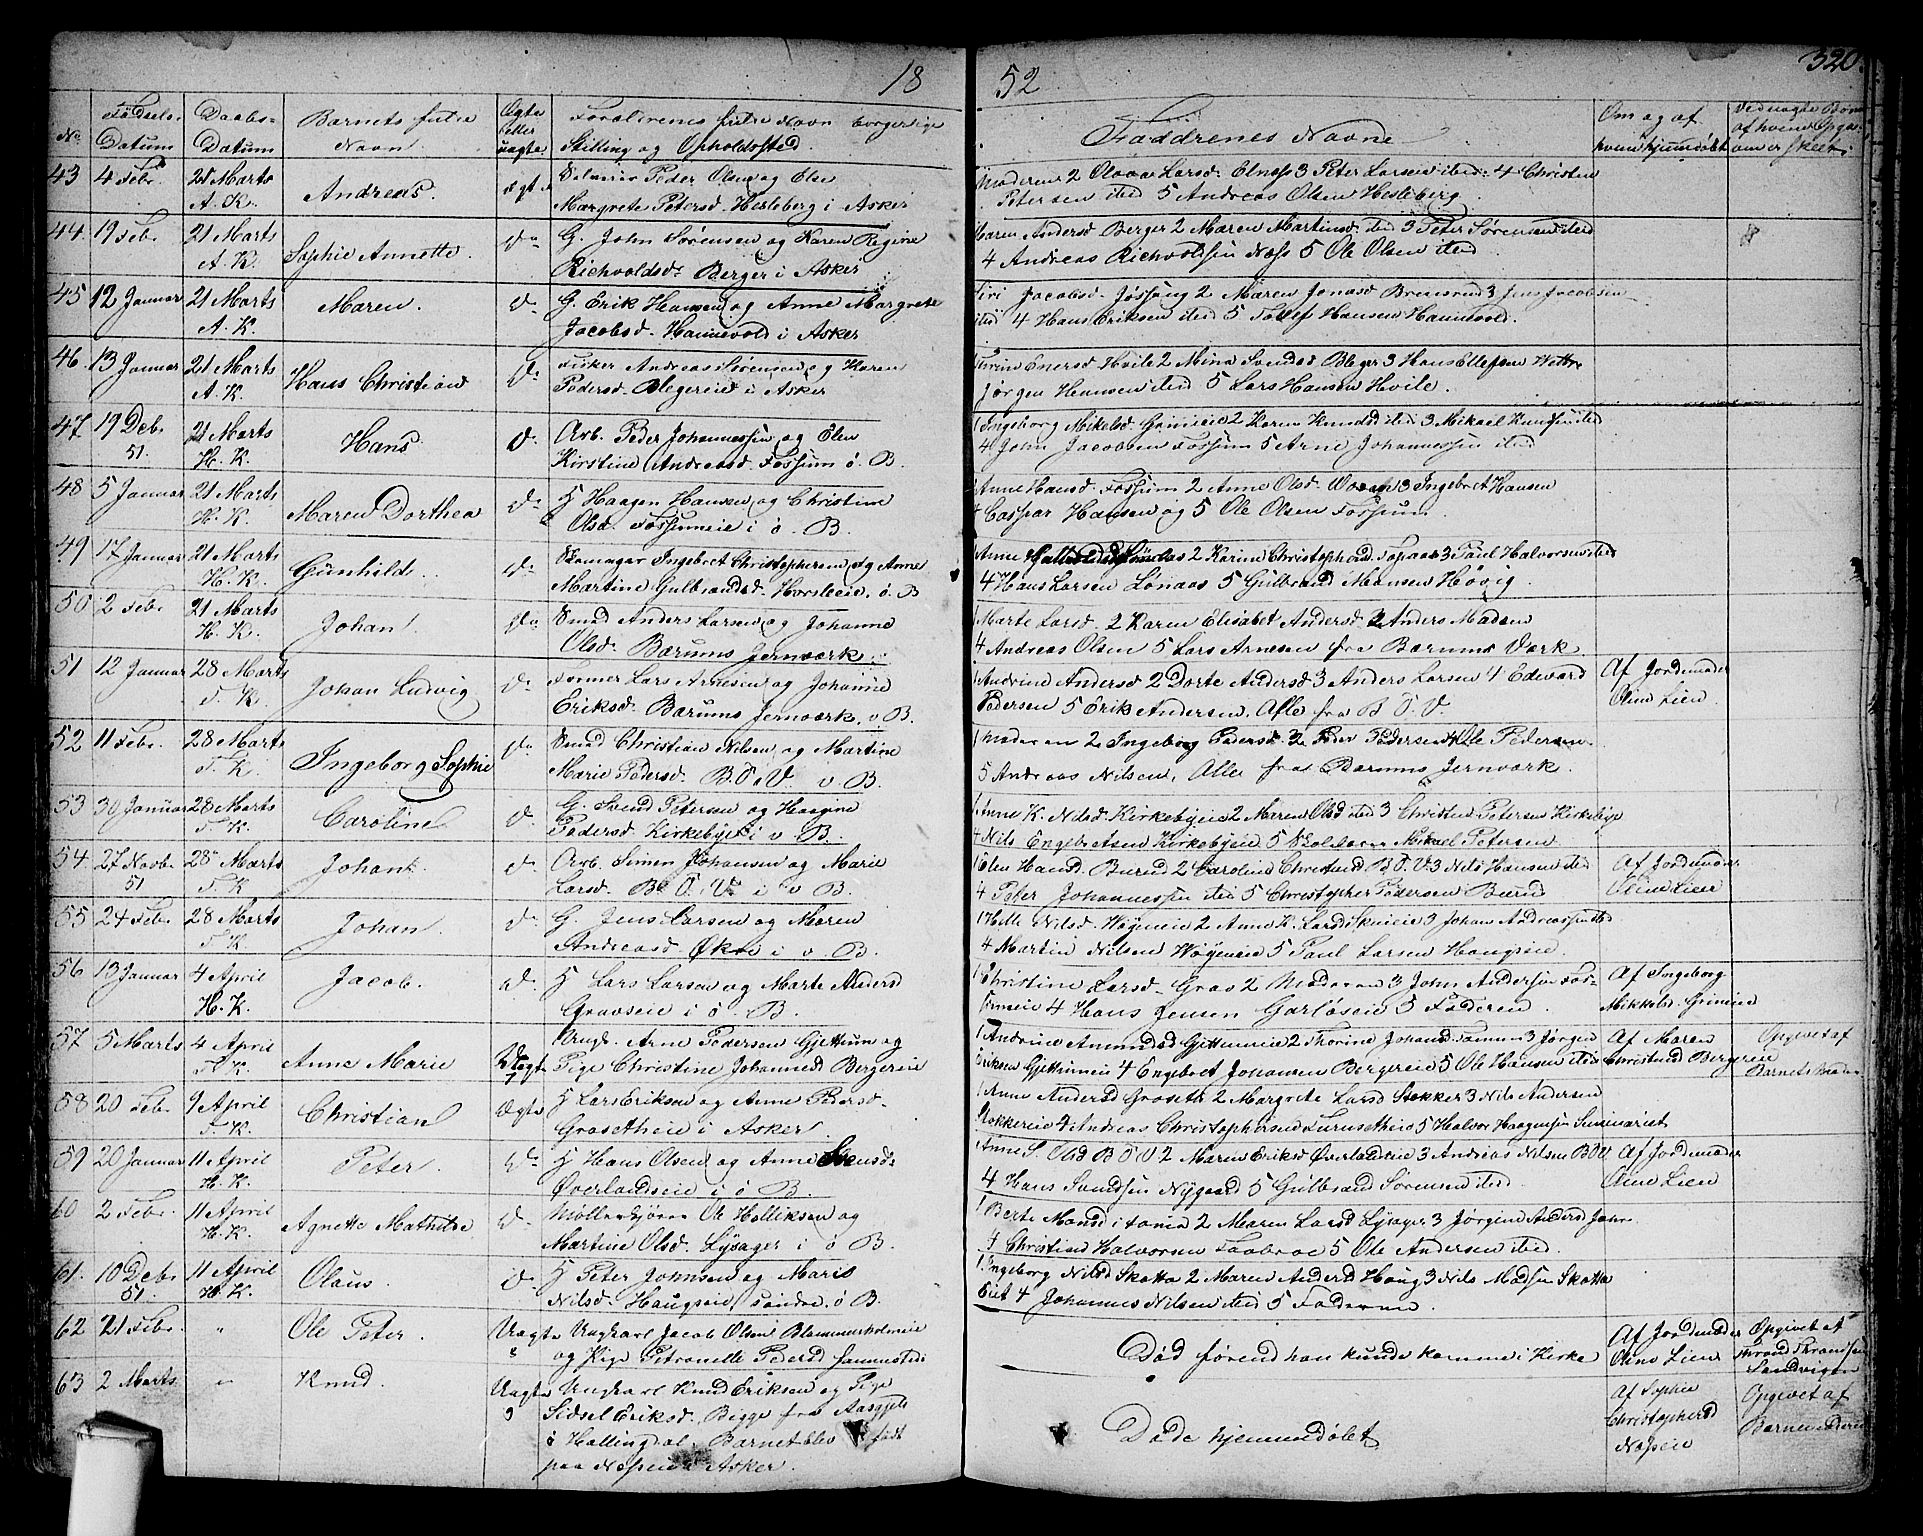 18
No
Fødsels-
Datum
Daabs-
Datum
Barnets fulde
Navn
Ægte
eller
uægte
Forældrenes fulde Navn borgerlige
Stilling og Opholdssted
43 4 Febr. 21 Marts Andreas. Ægte Peder Olsen og Elen
A. K. Margrete Petersd. Hesleberg i Asker
44. 19 Febr. 21 Marts Sophie Annette. Do G. John Sørensen og Karen Regine
A. K. Richvoldsd. Berger i Asker
45 12 Januar 21 Marts Maren. Do G. Erik Hansen og Anne Margrete
A. K. Jacobsd. Hannevold i Asker
46. 13 Januar 21 Marts Hans Christian Do Fisker Andreas Sørensen og Karen
A. K. Pedersd. Blegereie i Asker
47 19 Deb. 21 Marts Hans Do Arb. Peder Johannessen og Elen
51. H. K. Kirstine Andreasd. Fossum ø. B.
48 5 Januar 21 Marts Maren Dorthea Do H Haagen Hansen og Christine
H. K. Olsd. Fossumeie i ø. B.
49 17 Januar 21 Marts Gunhild. Do Skomager Ingebret Christophersen og Anne
H. K. Martine Gulbrandsd. Horsleeie. ø. B
50 2 Febr. 21 Marts Johan Do Smed Anders Larsen og Johanne
H. K. Olsd. Bærums Jernværk.
51 12 Januar 28 Marts Johan Ludvig Do Former Lars Arnesen og Johanne
T. K. Eriksd. Bærums Jernværk. v. B.
52 11 Febr. 28 Marts Ingeborg Sophie Do Smed Christian Nilsen og Martine
T. K. Marie Pedersd. B. J. V. v B.
53 30 Januar 28 Marts Caroline Do G. Svend Petersen og Haagine
T. K. Pedersd. Kirkebyeie i v. B.
54 27 Novbr 28 Marts Johan Do Arb. Simen Johansen og Marie
51 T. K Larsd. B. J. V. i v B.
55 24 Febr. 28 Marts Johan. Do G. Jens Larsen og Maren
T. K. Andreasd. Økri i v. B.
56 13 Januar 4 April Jacob. Do H Lars Larsen og Marte Andersd
H. K. Gravseie i ø. B.
57 5 Marts 4 April Anne Marie Uægte Ungk. Arne Pedersen Gjettum og
T. K. Pige Christine Johannesd Bergereie
58 20 Febr 9 April Christian Ægte H Lars Eriksen og Anne Pedersd.
T. K. Grosetheie i Asker.
59 20 Januar 11 April Peter. Do H Hans Olsen og Anne Svensd.
H. K. Øverlandseie i ø B.
60 2 Febr. 11 April Agnette Mathilde Do Møllerkjører Ole Halliksen og
H. K. Martine Olsd. Lysager i ø B.
61. 10 Debr 11 April Olaus. Do H Peter Johnsen og Maris
51. H. K. Nilsd. Haugseie søndre. ø B.
62 21 Febr. " Ole Peter. Uægte Ungkarl Jacob Olsen Blommenholmeie
og Pige Petronelle Pedersd sammesteds
63 2 Marts. " Knud. Uægte Ungkarl Knud Eriksen og Pige
Sidsel Eriksd. Begge fra Aasgjelt
i Hallingdal. Barnet blev født
paa Næseie i Asker.
52
320.
Faddrenes Navne
Om og af
hvem hjemmedøbt
Ved uægte Børn
af hvem Opgaven
er skeet.
1 Moderen 2 Olava Larsd. Elnes 3 Peter Larsen ibid. 4 Christen
Petersen ibid 5 Andreas Olsen Hesleberg.
Maren Andersd Berger 2 Maren Martinsd. ibid 3 Peter Sørensen ibid
4 Andreas Richvoldsen Næss 5 Ole Olsen ibid.
Siri Jacobsd. Jøssong 2 Maren Jonasd Brensrud 3 Jens Jacobsen
ibid 4 Hans Eriksen ibid 5 Tollef Hansen Hannevold.
Hvile 2 Mina Svendsd Bleger 3 Hans Ellefsen Wettre
Jørgen Hansen ibid 5 Lars Hansen Hvile.
1 Ingeborg Mikelsd Grinieie 2 Karen Knudsd ibid 3 Mikael Knudsen ibid
4 John Jacobsen Fossum 5 Arne Johannessen ibid
1 Anne Hansd. Fossum 2 Anne Olsd. 3 Ingebret Hansen
4 Caspar Hansen og 5 Ole Olsen Fossum
1 Anne 2 Karine Christophersd. 3 Paul Halvorsen ibid
4 Hans Larsen Lønaas 5 Gulbrand Hansen Høvig.
1 Marte Larsd. 2 Karen Elisabet Andersd. 3 Anders Madsen
4 Andreas Olsen 5 Lars Arnesen fra Bærums Værk.
1 Andrine Andersd 2 Dorte Andersd 3 Anders Larsen 4 Edward
Pedersen 5 Erik Andersen, Alle fra B. J. V.
Af Jordemoder
Oline Lien
1 Moderen 2 Ingeborg Pedersd. 3 Peder Pedersen 4 Ole Pedersen
5 Andreas Nilsen, Alle fra Bærums Jernværk.
1 Anne K. Nilsd. Kirkebyeie 2 Maren Olsd ibid 3 Christen Petersen Kirkebye
4 Nils Engebretsen Kirkebyeie 5 Mikael Petersen
1 Elen Hansd. Burud 2 Caroline Christensd B. J. V. 3 Nils Hansen ibid
4 Peter Johannessen ibid 5 Christopher Pedersen Burud
Af Jordemoder
Oline Lien
1 Helle Nilsd. Wøyeneie 2 Anne K. Larsd Skuieie 3 Johan Andreassen ibid
4 Martin Nilsen Wøyeneie 5 Paul Larsen Haugseie.
1 Christine Larsd. Grav 2 Moderen 3 John Andersen Fos-
sumeie 4 Hans Jensen Garløseie 5 Faderen
Af Ingeborg
Mikkelsd. Grinieie
1 Andrine Amundsd Gjettumeie 2 Thorine Johansd. 3 Jørgen
Eriksen Gjettumeie 4 Engebret Johansen Bergereie 5 Ole Hansen ibid
Af Maren
Christensd Bergereie
Opgivet af
Barnets Moder
1 Anne Andersd Groseth 2 Margrete Larsd Stokker 3 Nils Andersen
Stokkereie 4 Andreas Christophersen Furusetheie 5 Halvor Haagensen Seminariet
1 Anne S. Olsd B J V 2 Maren Eriksd Øverlandseie 3 Andreas Nilsen B J V
4 Hans Svendsen Nygaard 5 Gulbrand Sørensen ibid.
Af Jordemoder
Oline Lien
1 Berte Monsd i 2 Maren Larsd Lysager 3 Jørgine Andersd
4 Christine Halvorsen Faabroe 5 Ole Andersen ibid.
1 Ingeborg Nilsd Skotta 2 Maren Andersd Haug 3 Nils Madsen Skotta
Eiet 4 Johannes Nilsen ibid 5 Faderen.
Død førend han kunde komme i Kirke
Af Jordemoder
Oline Lien
Opgivet af
Trond Throndsen
Sandvigen
Døde hjemmedøbt
Af Sophie
Christophersd
Næseie
Opgivet af
Barnemoderen